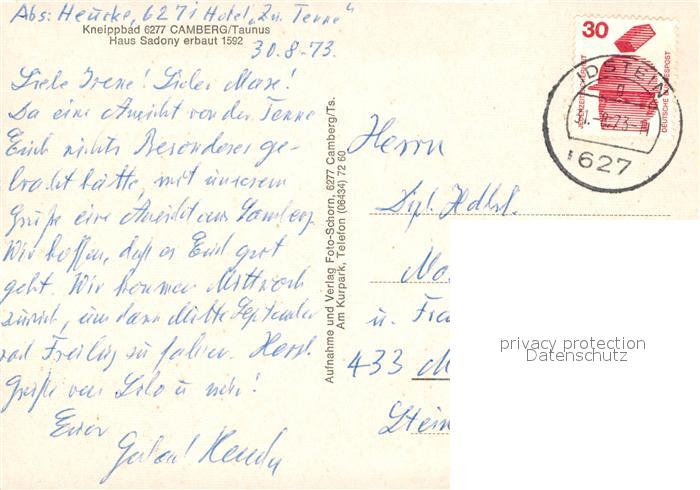 Abs: Heucke, 627i Hotel „Zu. Tenne"
Kneippbad 6277 CAMBERG/Taunus
Haus Sadony erbaut 1592
30.8.73.
Liebe Irene! Lieber Max!
Da eine Ansicht von der Tenne
Euch nichts Besonderes ge-
bracht hätte, mit unserem
Gruß eine Ansicht aus Camberg.
Wir hoffen, daß es Euch gut
geht. Wir kommen Mittwoch
zurück, um dann Mitte September
nach Freibg zu fahren. Herzl.
Grüße von Lilo u mir!
Euer
Aufnahme und Verlag Foto-Schorn, 6277 Camberg/Ts.
Am Kurpark, Telefon (06434) 72 60
30
JEDERZEIT SICHERHEIT
DEUTSCHE BUNDESPOST
IDSTEIN
31.-8.73-11
627
Herrn
Dipl. Hdlsl.
u. Frau
433 M
Stein
privacy protection
Datenschutz